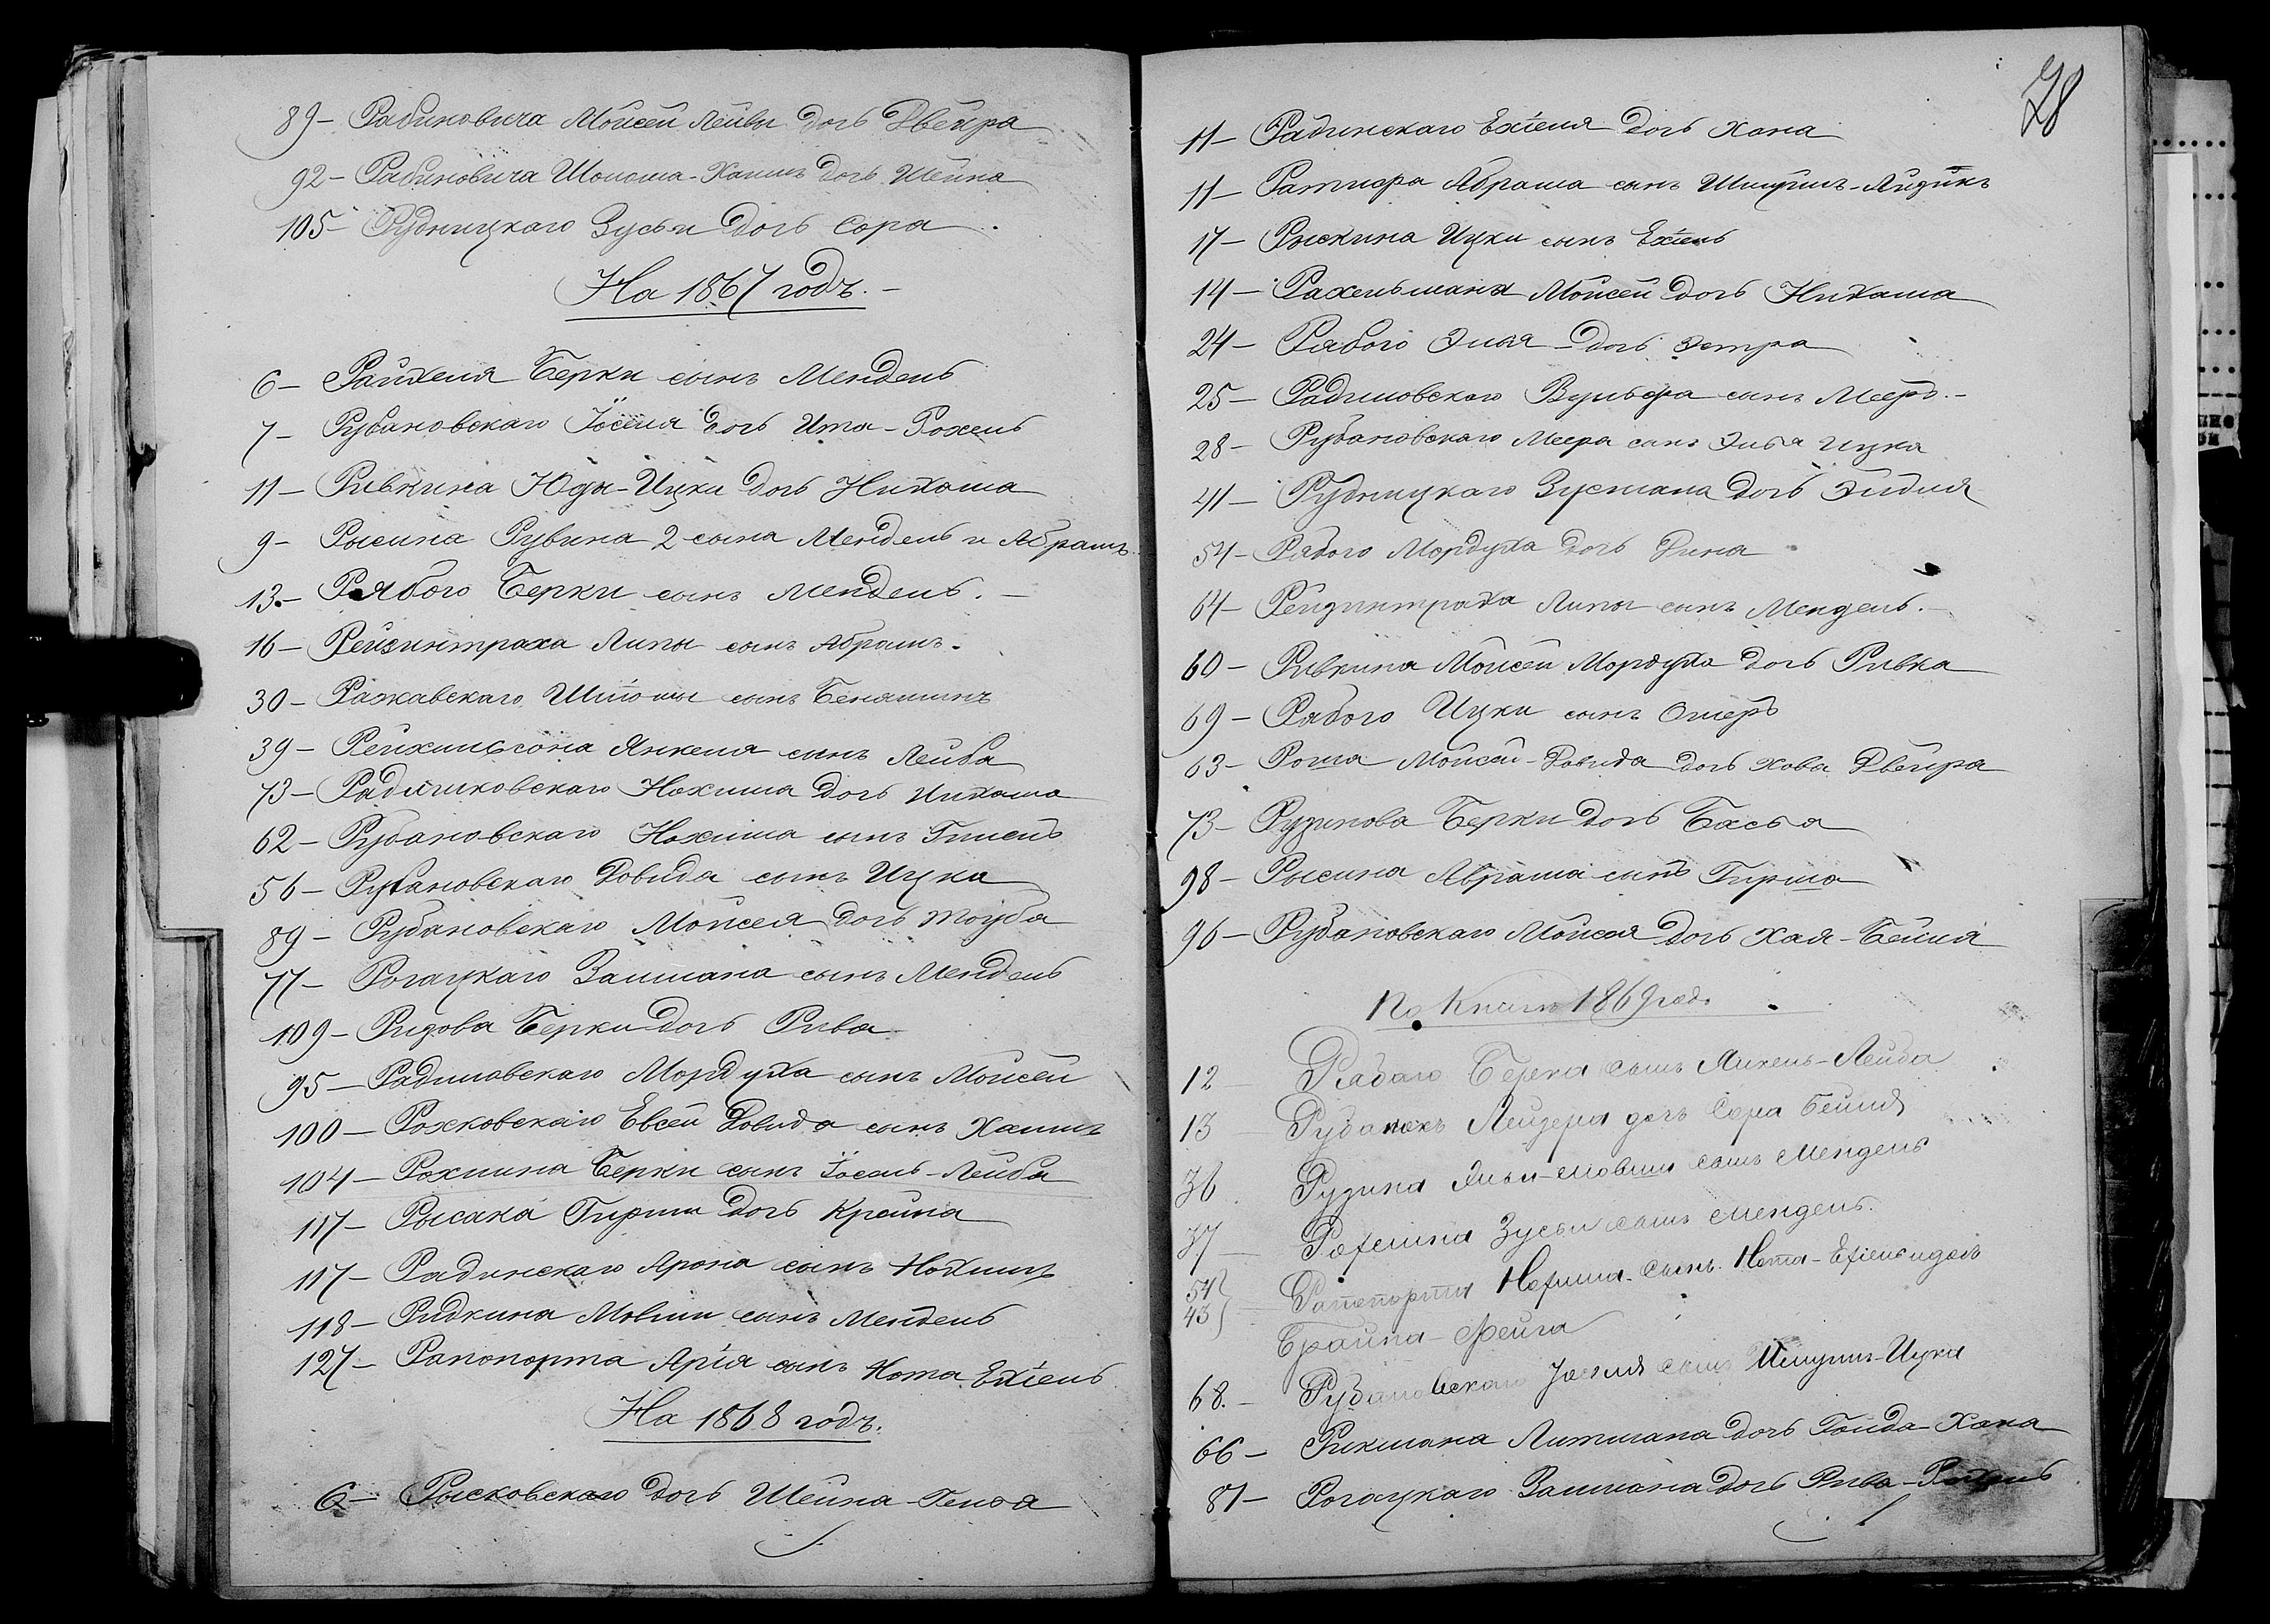 89 – Рабиновича Мойсей Лейбы дочь Двейра
92 – Рабиновича Шлиома-Хаимъ дочь Шейна
105 – Рудницкаго Зусьи дочь Сора
На 1867 годъ. –
6 – Райхеля Берки сынъ Мендель
7 – Рубановскаго Іоселя дочь Ита-Рохель
11 – Ривкина Юды-Ицки дочь Нихама
9 – Рысина Рувина 2 сына Мендель и Абрамъ
13 – Рябого Берки сынъ Мендель. –
16 – Рейзинтраха Липы сынъ Абрамъ.
30 – Ражавскаго Шліомы сынъ Беняминъ
39 – Рейхильсона Янкеля сынъ Лейба
73 – Нохима дочь Нихама
62 – Рубановскаго Нохима сынъ
56 – Рубановскаго Довида сынъ Ицка
89 – Рубановскаго Мойсея дочь Тоуба
77 – Рогацкаго Залмана сынъ Мендель
109 – Ридова Берки дочь Рива
95 – Радиловскаго Мордуха сынъ Мойсей
100 – Рожковскаго Евсей Довида сынъ Хаимъ
104 – Рохлина Берки сынъ Іосель-Лейба
117 – Рысака Гирши дочь Крейна
117 – Радинскаго Арона сынъ Нохимъ
118 – Ридкина Мовши сынъ Мендель
127 – Рапопорта Арія сынъ Нота Ехіель
На 1868 годъ.
6 – Рысковскаго дочь Шейна-Геня
28
11 – Радинскаго Ехіеля дочь Хана
11 – Ратнера Абрама сынъ
17 – Рыскина Ицки сынъ Ехіель
14 – Рахельмана Мойсей дочь Нихама
24 – Рябого Элья дочь Эстра
25 – Радиловскаго Вульфа сынъ Мееръ. –
28 – Рубановскаго Меера сынъ Элья Ицка
41 – Рудницкаго Зусмана дочь Эйдля
54 – Рябого Мордуха дочь Дина
64 – Рейзинтраха Липы сынъ Мендель. –
60 – Ривкина Мойсей Мордуха дочь Ривка
69 – Рябого Ицки сынъ Ошеръ
63 – Роша Мойсей-Довида дочь Хова Двейра
73 – Рузинова Берки дочь Бася
98 – Рысина Абрама сынъ Гирша
96 – Рубановскаго Мойсея дочь Хая-Бейля
По Книгѣ 1869 год.
12 – Рабаго Берка сынъ Янкель-Лейба
13 – Рубанокъ Лейзера дочь Сора Бейля
36. Рузина Эльи-Мовши сынъ Мендель
37 – Рохлина Зусьи сынъ Мендель.
54
43 } – Рапопорта Нохима сынъ Нота-Ехіель и дочь
Брайна-Фейга
68. – Рубановскаго Іоселя сынъ Шмуил-Ицка
66 – Рикмана Литмана дочь Гонда-Хана
87 – Рогацкаго Залмана дочь Рива-Рахиль